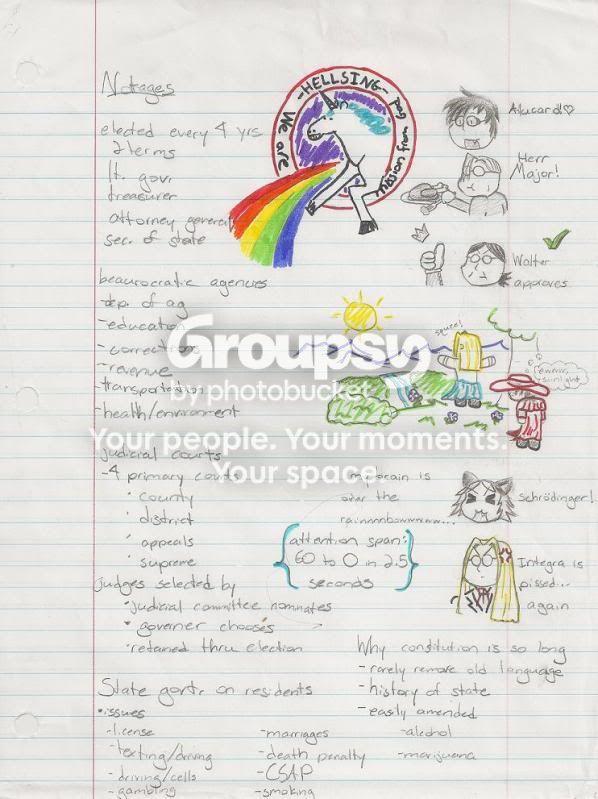 Notages
elected every 4 yrs
2 terms
lt. govr
treasurer
attorney general
sec. of state
beaurocratic agencies
-dep. of ag
-education
-corrections
-revenue
-transportation
-health/environment
judicial courts
-4 primary courts
• county
• district
• appeals
• supreme
judges selected by
• judicial committee nominates
• governer chooses
• retained thru election
State govtr on residents
•issues
-license
-texting/driving
-driving/cells
-gambling
-marriages
-death penalty
-CSAP
-smoking
-alcohol
-marijuana
Why constitution is so long
-rarely remove old language
-history of state
-easily amended
-HELLSING-
We are
mission from God
Alucard!♡
Herr
Major!
Walter
approves
squee!
sunlight
my brain is
over the
rainnnbowwwww...
{attention span:
60 to 0 in 2.5
seconds}
Schrödinger!
Integra is
pissed...
again
Groupsy
by photobucket
Your people. Your moments.
Your space.